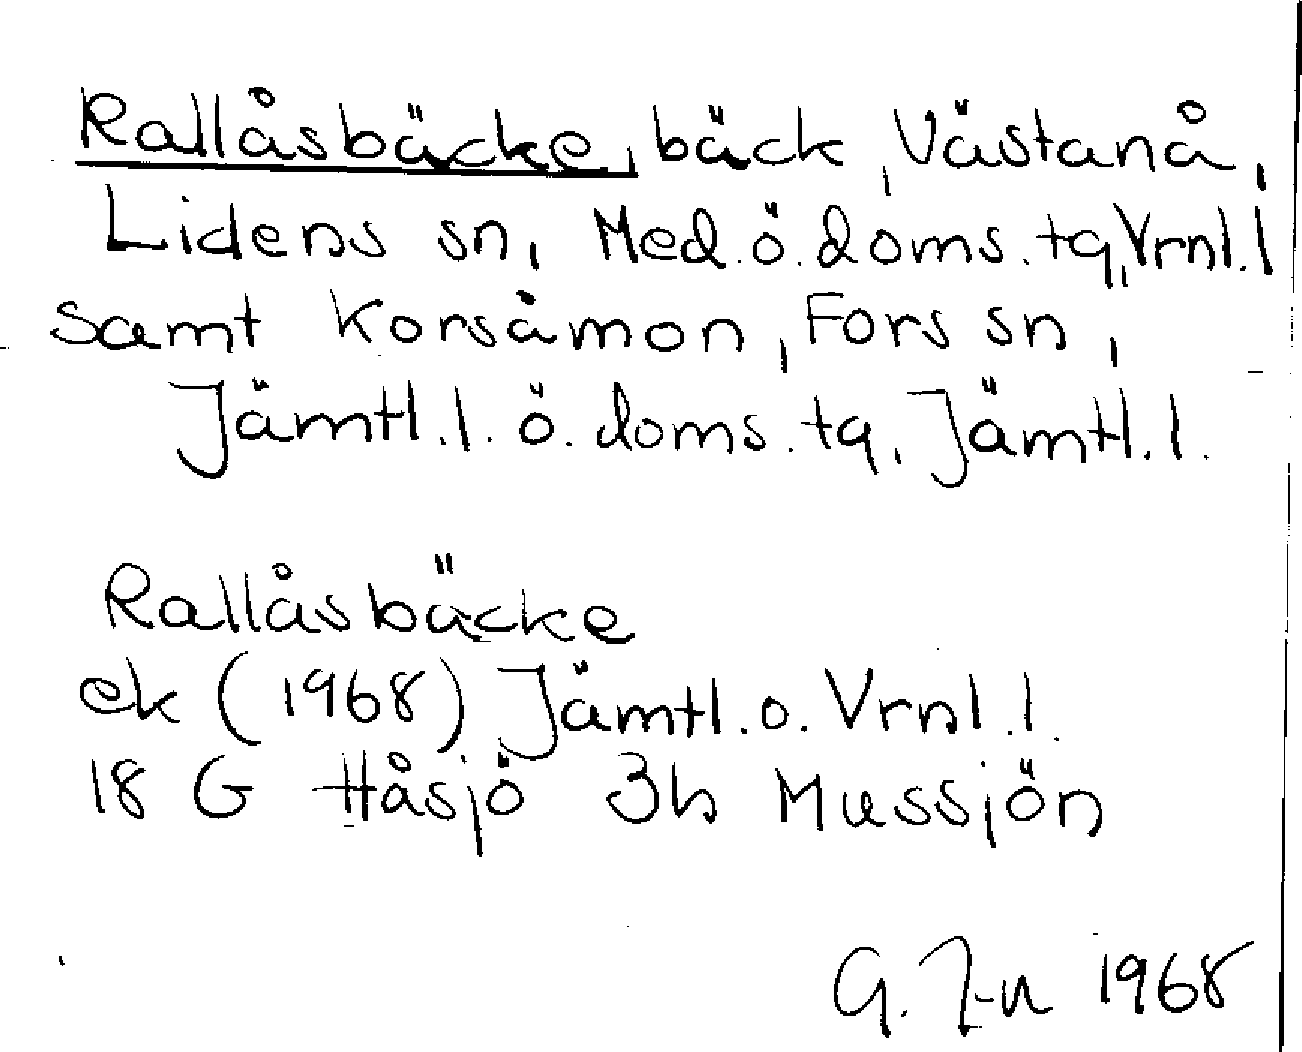 Rallåsbäcke, bäck, Västanå,
Lidens sn, Med.ö.doms.tq, Vrnl.l
samt Korsåmon, Fors sn,
Jämtl.l. ö. doms.tq, Jämtl.l.
Rallåsbäcke
ek (1968) Jämtl.o. Vrnl.l.
18 G Håsjö 3h Mussjön
G. J-n 1968